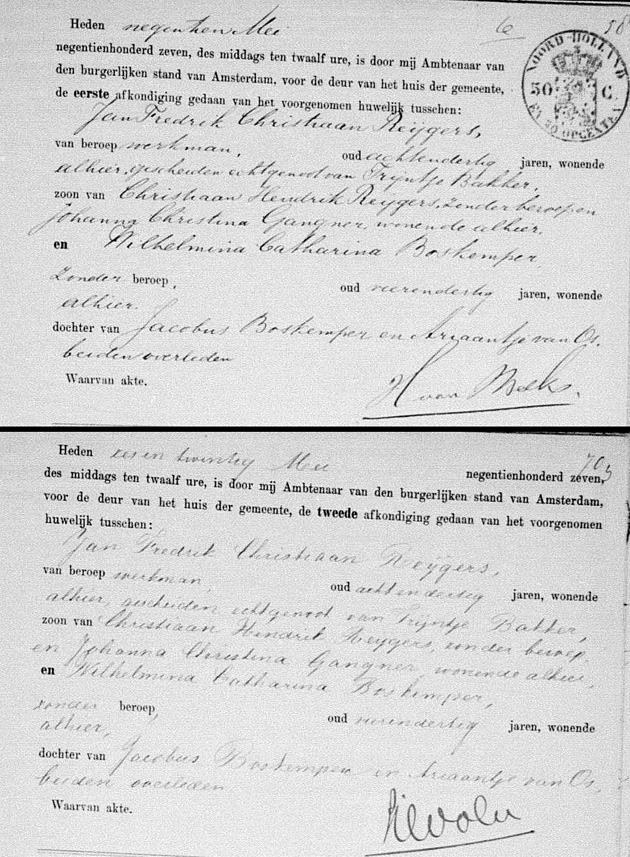 Heden negentien Mei 16 58
negentienhonderd zeven, des middags ten twaalf ure, is door mij Ambtenaar van
den burgerlijken stand van Amsterdam, voor de deur van het huis der gemeente,
de eerste afkondiging gedaan van het voorgenomen huwelijk tusschen:
NOORD-HOLLAND
50 C.
EN 30 OPCENTEN
Jan Fredrik Christiaan Reijgers,
van beroep werkman, oud achtendertig jaren, wonende
alhier, gescheiden echtgenoot van Trijntje Bakker,
zoon van Christiaan Hendrik Reijgers, zonder beroep en
Johanna Christina Gangner, wonende alhier.
en Wilhelmina Catharina Boskemper,
zonder beroep, oud vierendertig jaren, wonende
alhier.
dochter van Jacobus Boskemper en Ariaantje van Os.
beiden overleden
Waarvan akte.
Heden zes en twintig Mei negentienhonderd zeven,
des middags ten twaalf ure, is door mij Ambtenaar van den burgerlijken stand van Amsterdam,
voor de deur van het huis der gemeente, de tweede afkondiging gedaan van het voorgenomen
huwelijk tusschen:
Jan Fredrik Christiaan Reijgers,
van beroep werkman, oud achtendertig jaren, wonende
alhier, gescheiden echtgenoot van Trijntje Bakker,
zoon van Christiaan Hendrik Reijgers, zonder beroep
en Johanna Christina Gangner, wonende alhier,
en Wilhelmina Catharina Boskemper,
zonder beroep, oud vierendertig jaren, wonende
alhier,
dochter van Jacobus Boskemper en Ariaantje van Os,
beiden overleden
Waarvan akte.